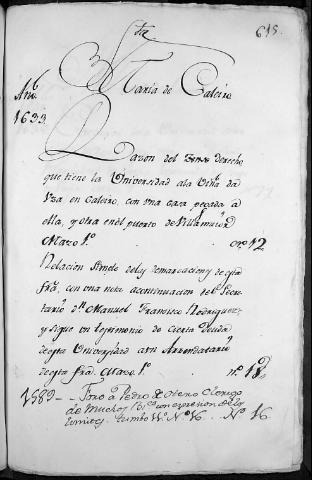 Sta
615.
Maria de Caleiro
Año
1633
Razon del derecho
que tiene la Universidad ala Viña da
Vza en Caleiro, con una casa pegada á
ella, y otra en el puerto de Villamaior
Mazo 1º nº 12
Relacion simple del y demarcaciones de esta
frã, con una nota acontinuacion del Secre-
tario Dn Manuel Francisco Rodriguez
y sigue un testimonio de cierta Deuda
de esta Universidad a un Arrendatario
de esta frã. Mazo 1º nº 18
1589 - Foro a Pedro de Otero Clerigo
de muchos Bs con expresion de los
limites. Tumbo Nº 16. Nº 16